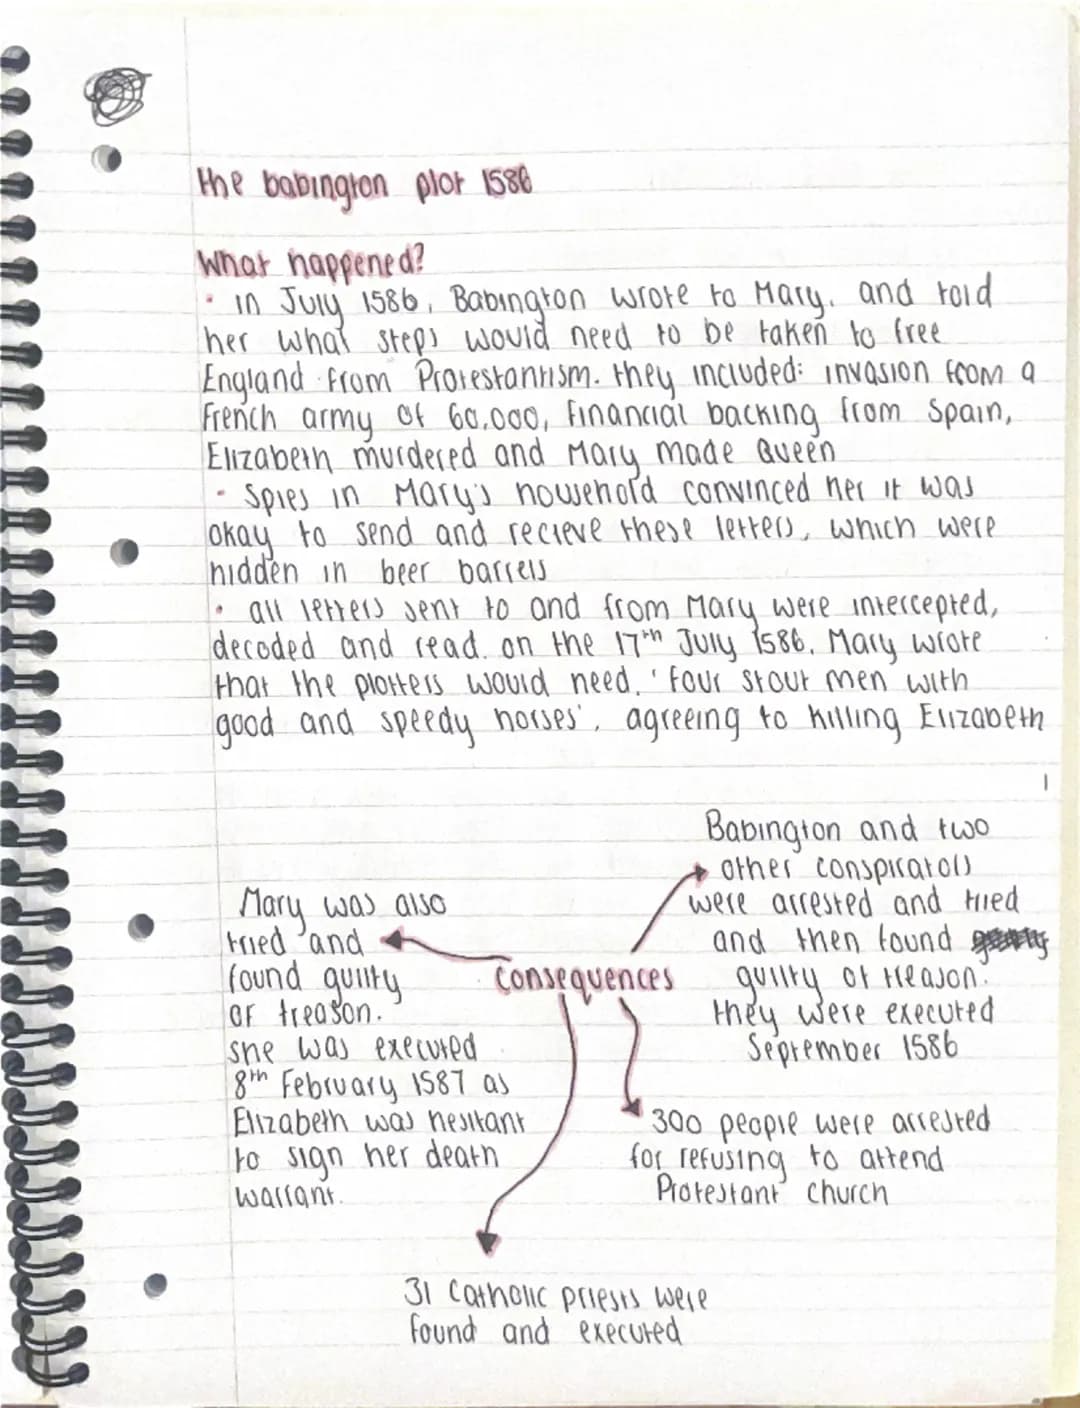 the babington plot 1586
What happened?
• in July 1586, Babington wrote to Mary. and told
her what steps would need to be taken to free
England from Protestantism. they included: invasion from a
French army of 60,000, financial backing from Spain,
Elizabeth murdered and Mary made Queen
• Spies in Mary's household convinced her it was
okay to send and recieve these letters, which were
hidden in beer barrels
• all letters sent to and from Mary were intercepted,
decoded and read. on the 17th July 1586, Mary wrote
that the plotters would need, 'four stout men with
good and speedy horses', agreeing to killing Elizabeth
Babington and two
other conspirators
were arrested and tried
and then found
guilty of treason.
they were executed
September 1586
Mary was also
tried and
found guilty
of treason.
she was executed
8th February 1587 as
Elizabeth was hesitant
to sign her death
warrant.
Consequences
300 people were arrested
for refusing to attend
Protestant church
31 Catholic priests were
found and executed